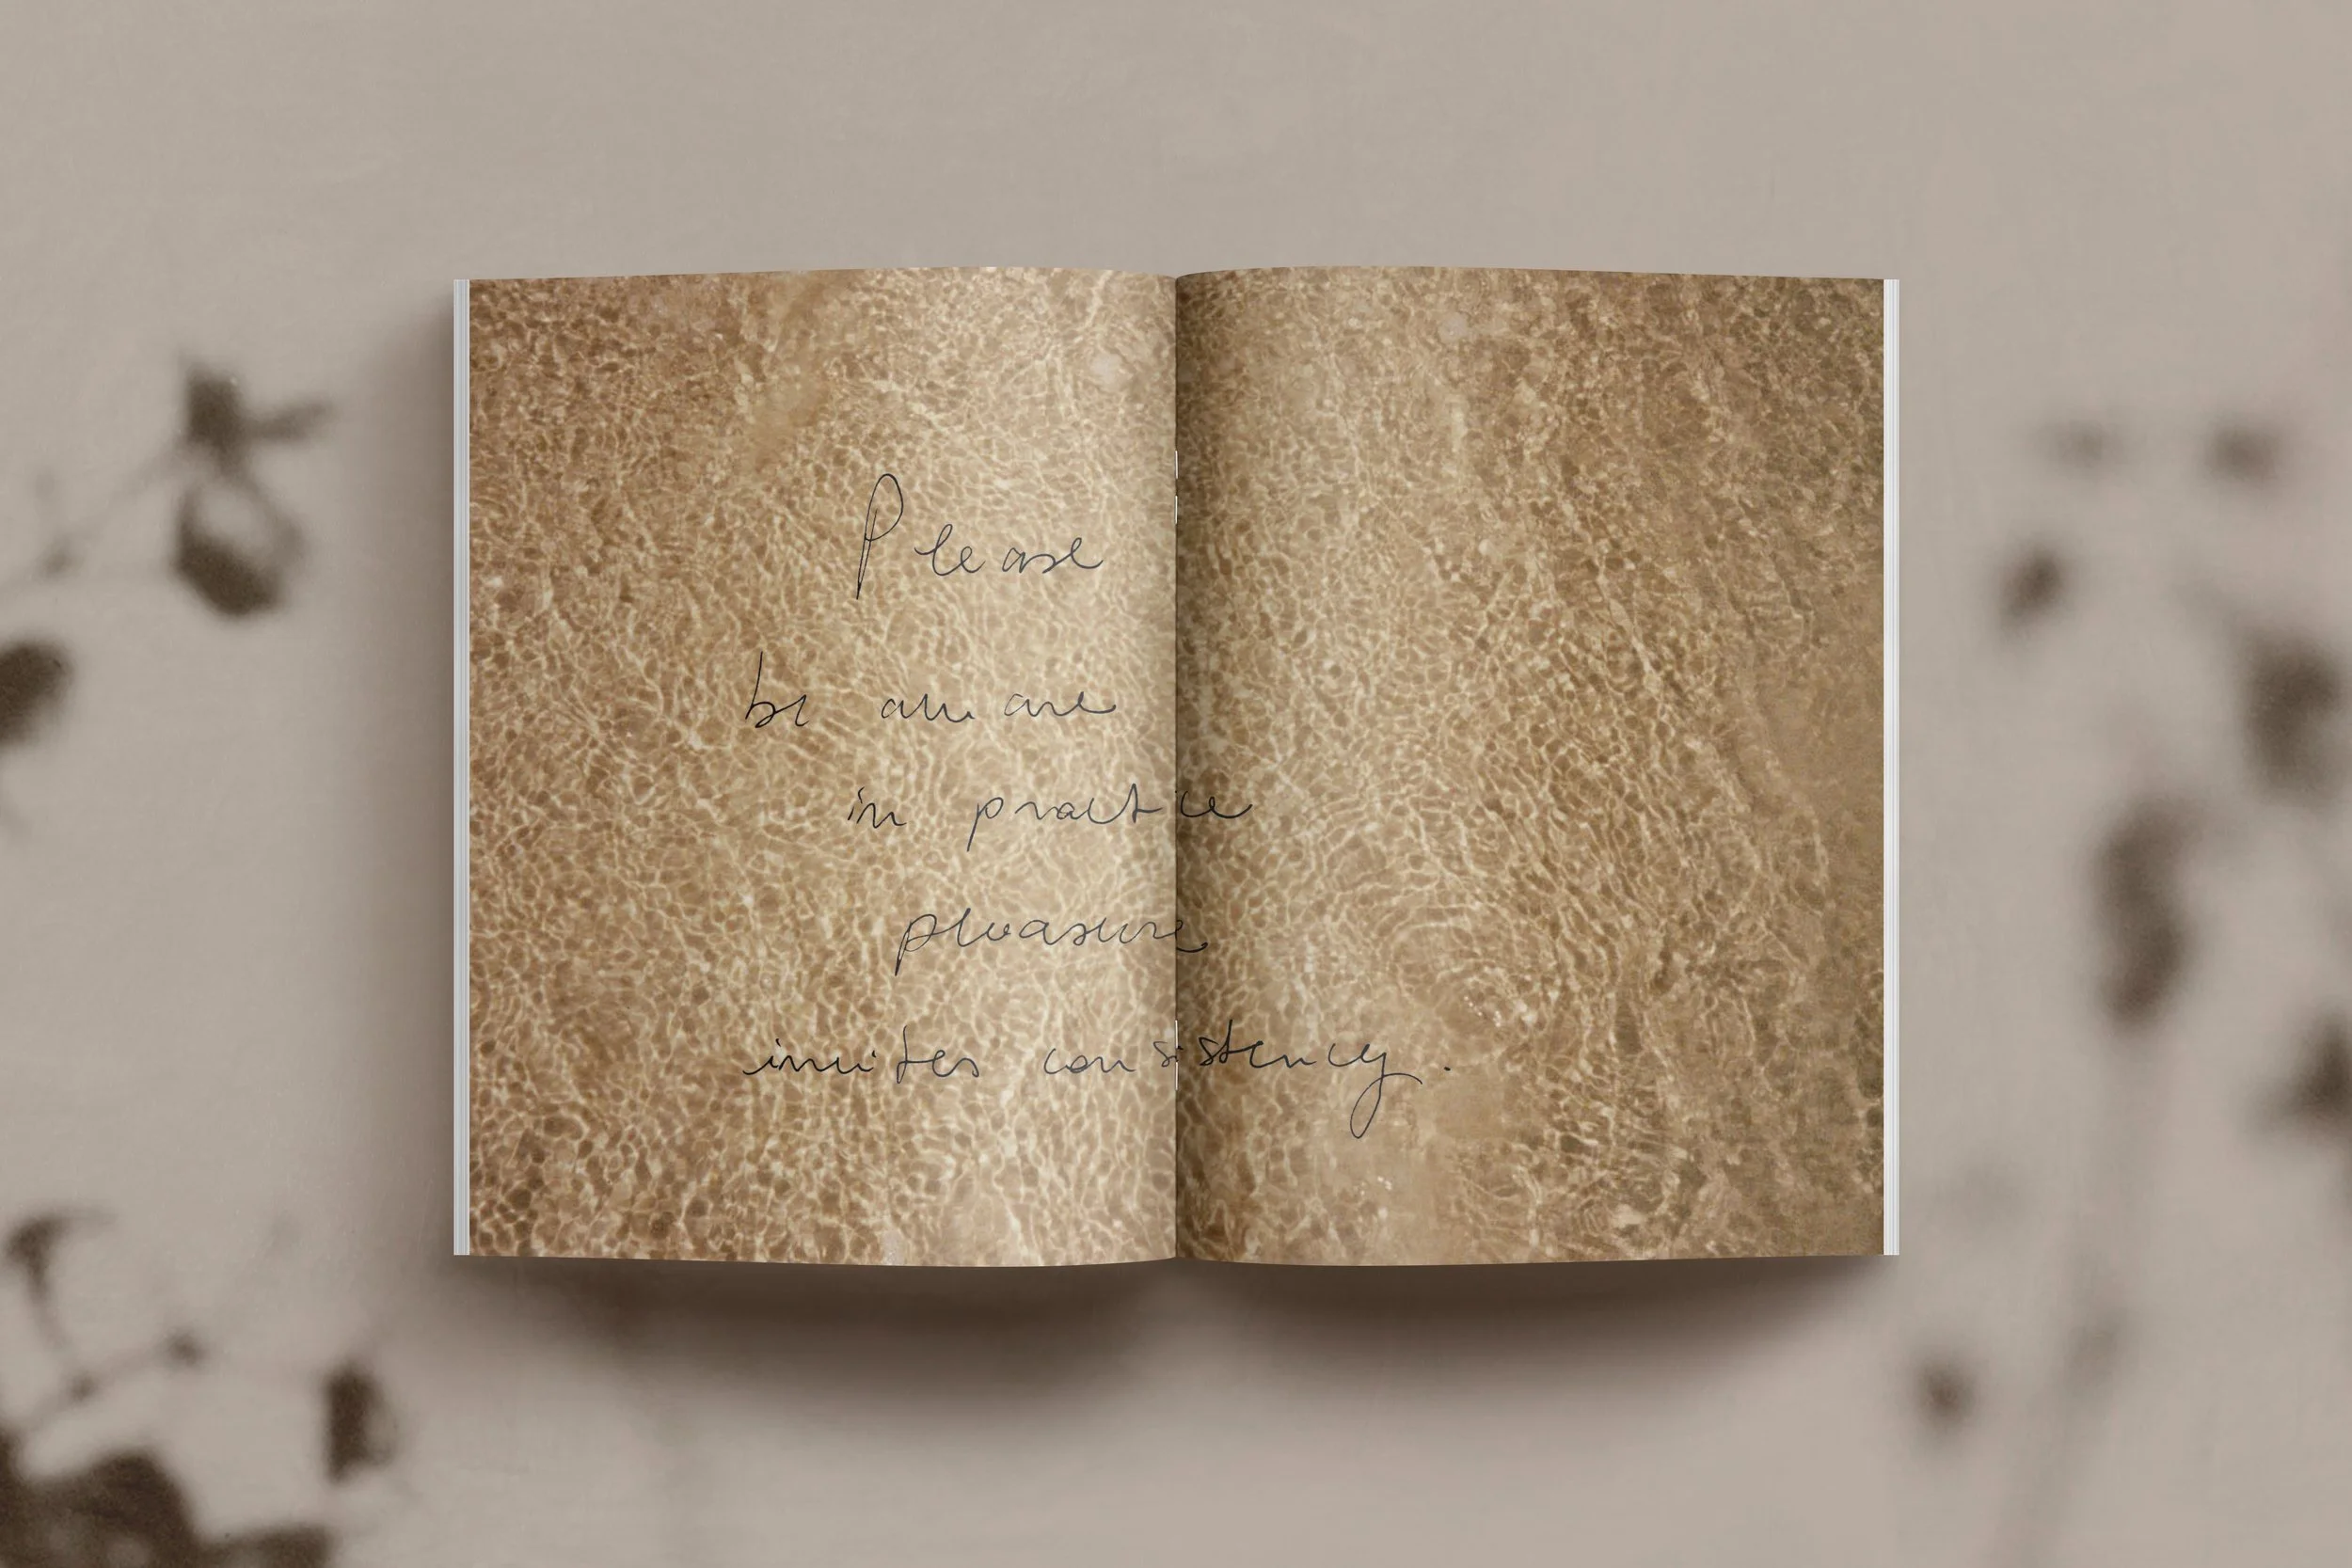 Please
be aware
in practice
pleasure
invites consistency.